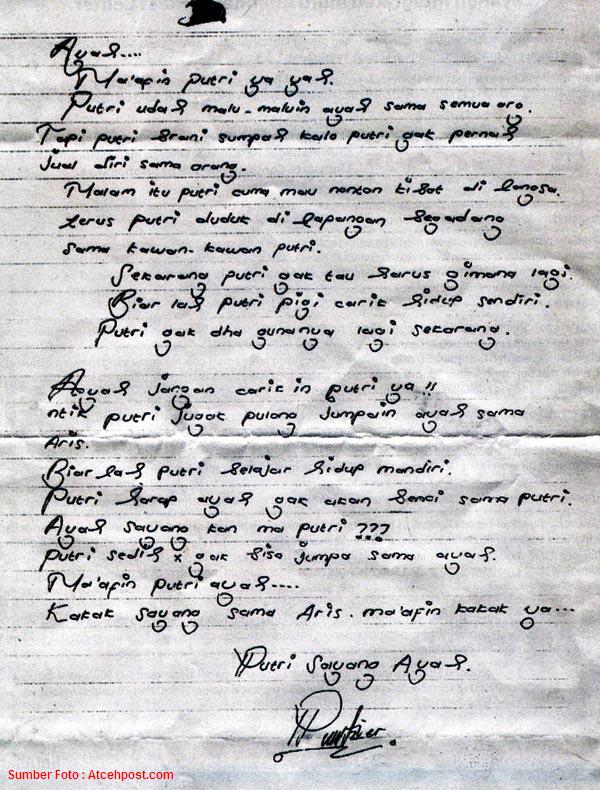 Ayah....
Ma'afin putri ya yah.
Putri udah malu-maluin ayah sama semua org.
Tapi putri brani sumpah kalo putri gak pernah
jual diri sama orang.
Malam itu putri cuma mau nonton kibot di langsa.
terus putri duduk di lapangan begadang
sama kawan-kawan putri.
Sekarang putri gak tau harus gimana lagi.
Biar lah putri pigi carik hidup sendiri.
Putri gak dha gunanya lagi sekarang.
Ayah jangan carik in putri ya !!
ntik putri jugak pulang jumpain ayah sama
Aris.
Biar lah putri belajar hidup mandiri.
Putri harap ayah gak akan benci sama putri.
Ayah sayang kan ma putri ???
putri sedih x gak bisa jumpa sama ayah.
Ma'afin putri ayah....
Kakak sayang sama Aris. ma'afin kakak ya...
Putri Sayang Ayah.
Sumber Foto : Atcehpost.com